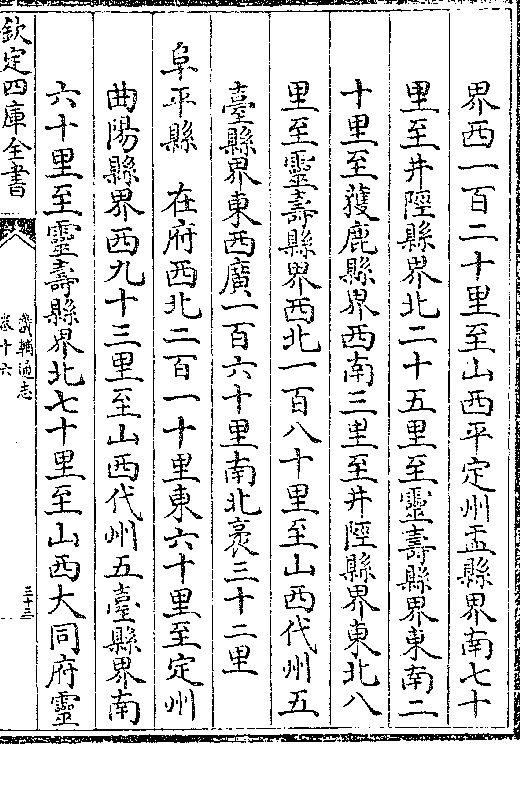 界西一百二十里至山西平定州盂縣界南七十
里至井陘縣界北二十五里至靈壽縣界東南二
十里至獲鹿縣界西南三里至井陘縣界東北八
里至靈壽縣界西北一百八十里至山西代州五
臺縣界東西廣一百六十里南北袤三十二里
阜平縣 在府西北二百一十里東六十里至定州
曲陽縣界西九十三里至山西代州五臺縣界南
六十里至靈壽縣界北七十里至山西大同府靈
欽定四庫全書
畿輔通志
卷十六
三十三